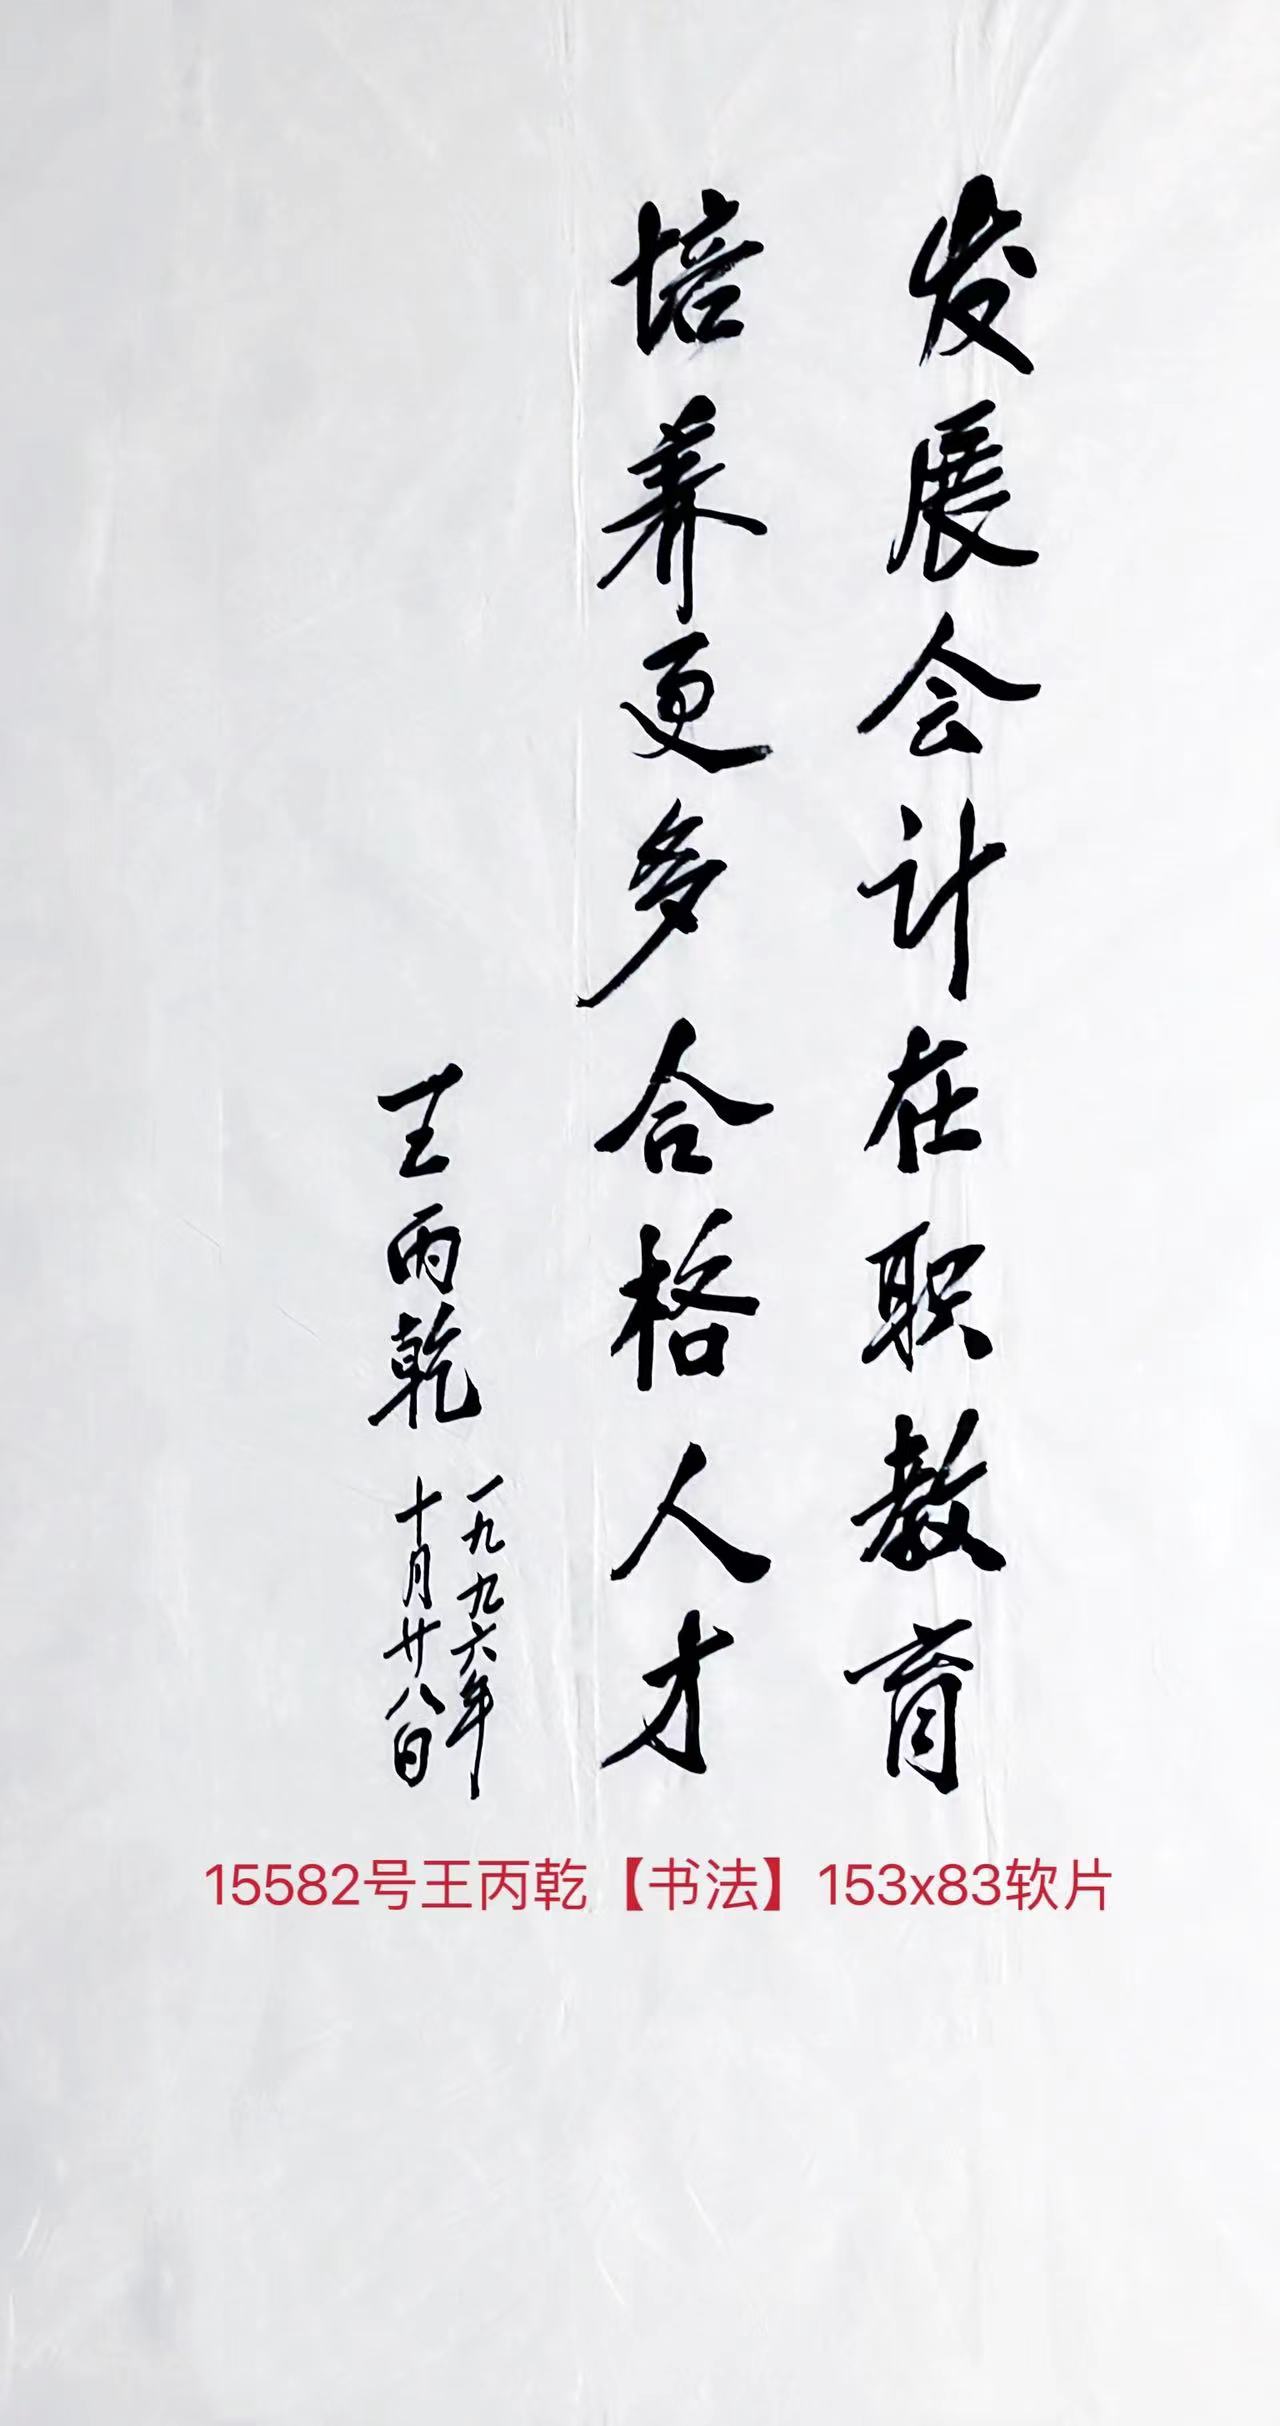 发展会计在职教育
培养更多合格人才
王丙乾
一九九六年
十月廿八日
15582号王丙乾【书法】153x83软片